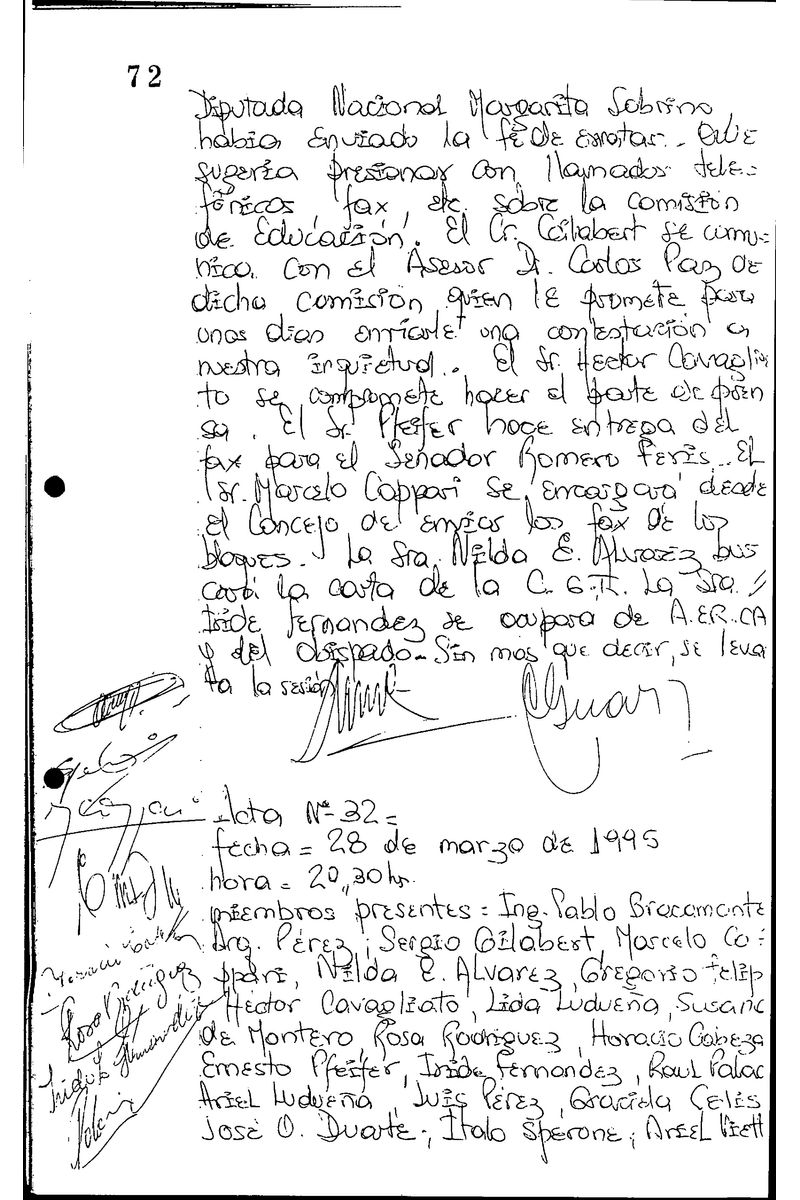 72
Diputada Nacional Margarita Sobrino,
había enviado la fé de erratas. Que
sugería presionar con llamados tele-
fónicos, fax, etc. sobre la comisión
de Educación. El Cr. Gilabert se comu-
nica con el Asesor Dr. Carlos Paz de
dicha comisión quien le promete para
unos dias enviarle una contestación a
nuestra inquietud. El Sr. Hector Cavaglia
to se compromete hacer el parte de pren
sa. El Sr. Pfeifer hace entrega del
fax para el Senador Romero Feris. El
Sr. Marcelo Cappari se encargará desde
el Concejo de enviar los fax de los
bloques. La Sra. Nilda E. Alvarez bus
cará la carta de la C.G.T. La Sra.
Iride Fernandez se ocupará de A.ER.CA
y del obispado. Sin mas que decir, se levan
ta la sesión
Acta Nº 32=
fecha = 28 de marzo de 1995
hora = 20,30 hs.
miembros presentes = Ing. Pablo Bracamonte
Arq. Pérez, Sergio Gilabert, Marcelo Ca-
ppari, Nilda E. Alvarez, Gregorio Felip
Héctor Cavagliato, Lida Ludueña, Susana
de Montero, Rosa Rodriguez, Horacio Cabeza
Ernesto Pfeifer, Iride Fernandez, Raul Palac
Ariel Ludueña, Luis Pérez, Graciela Celis
José O. Duarte, Italo Sperone, Ariel Viett
Rosa Rodriguez
Iride Fernandez